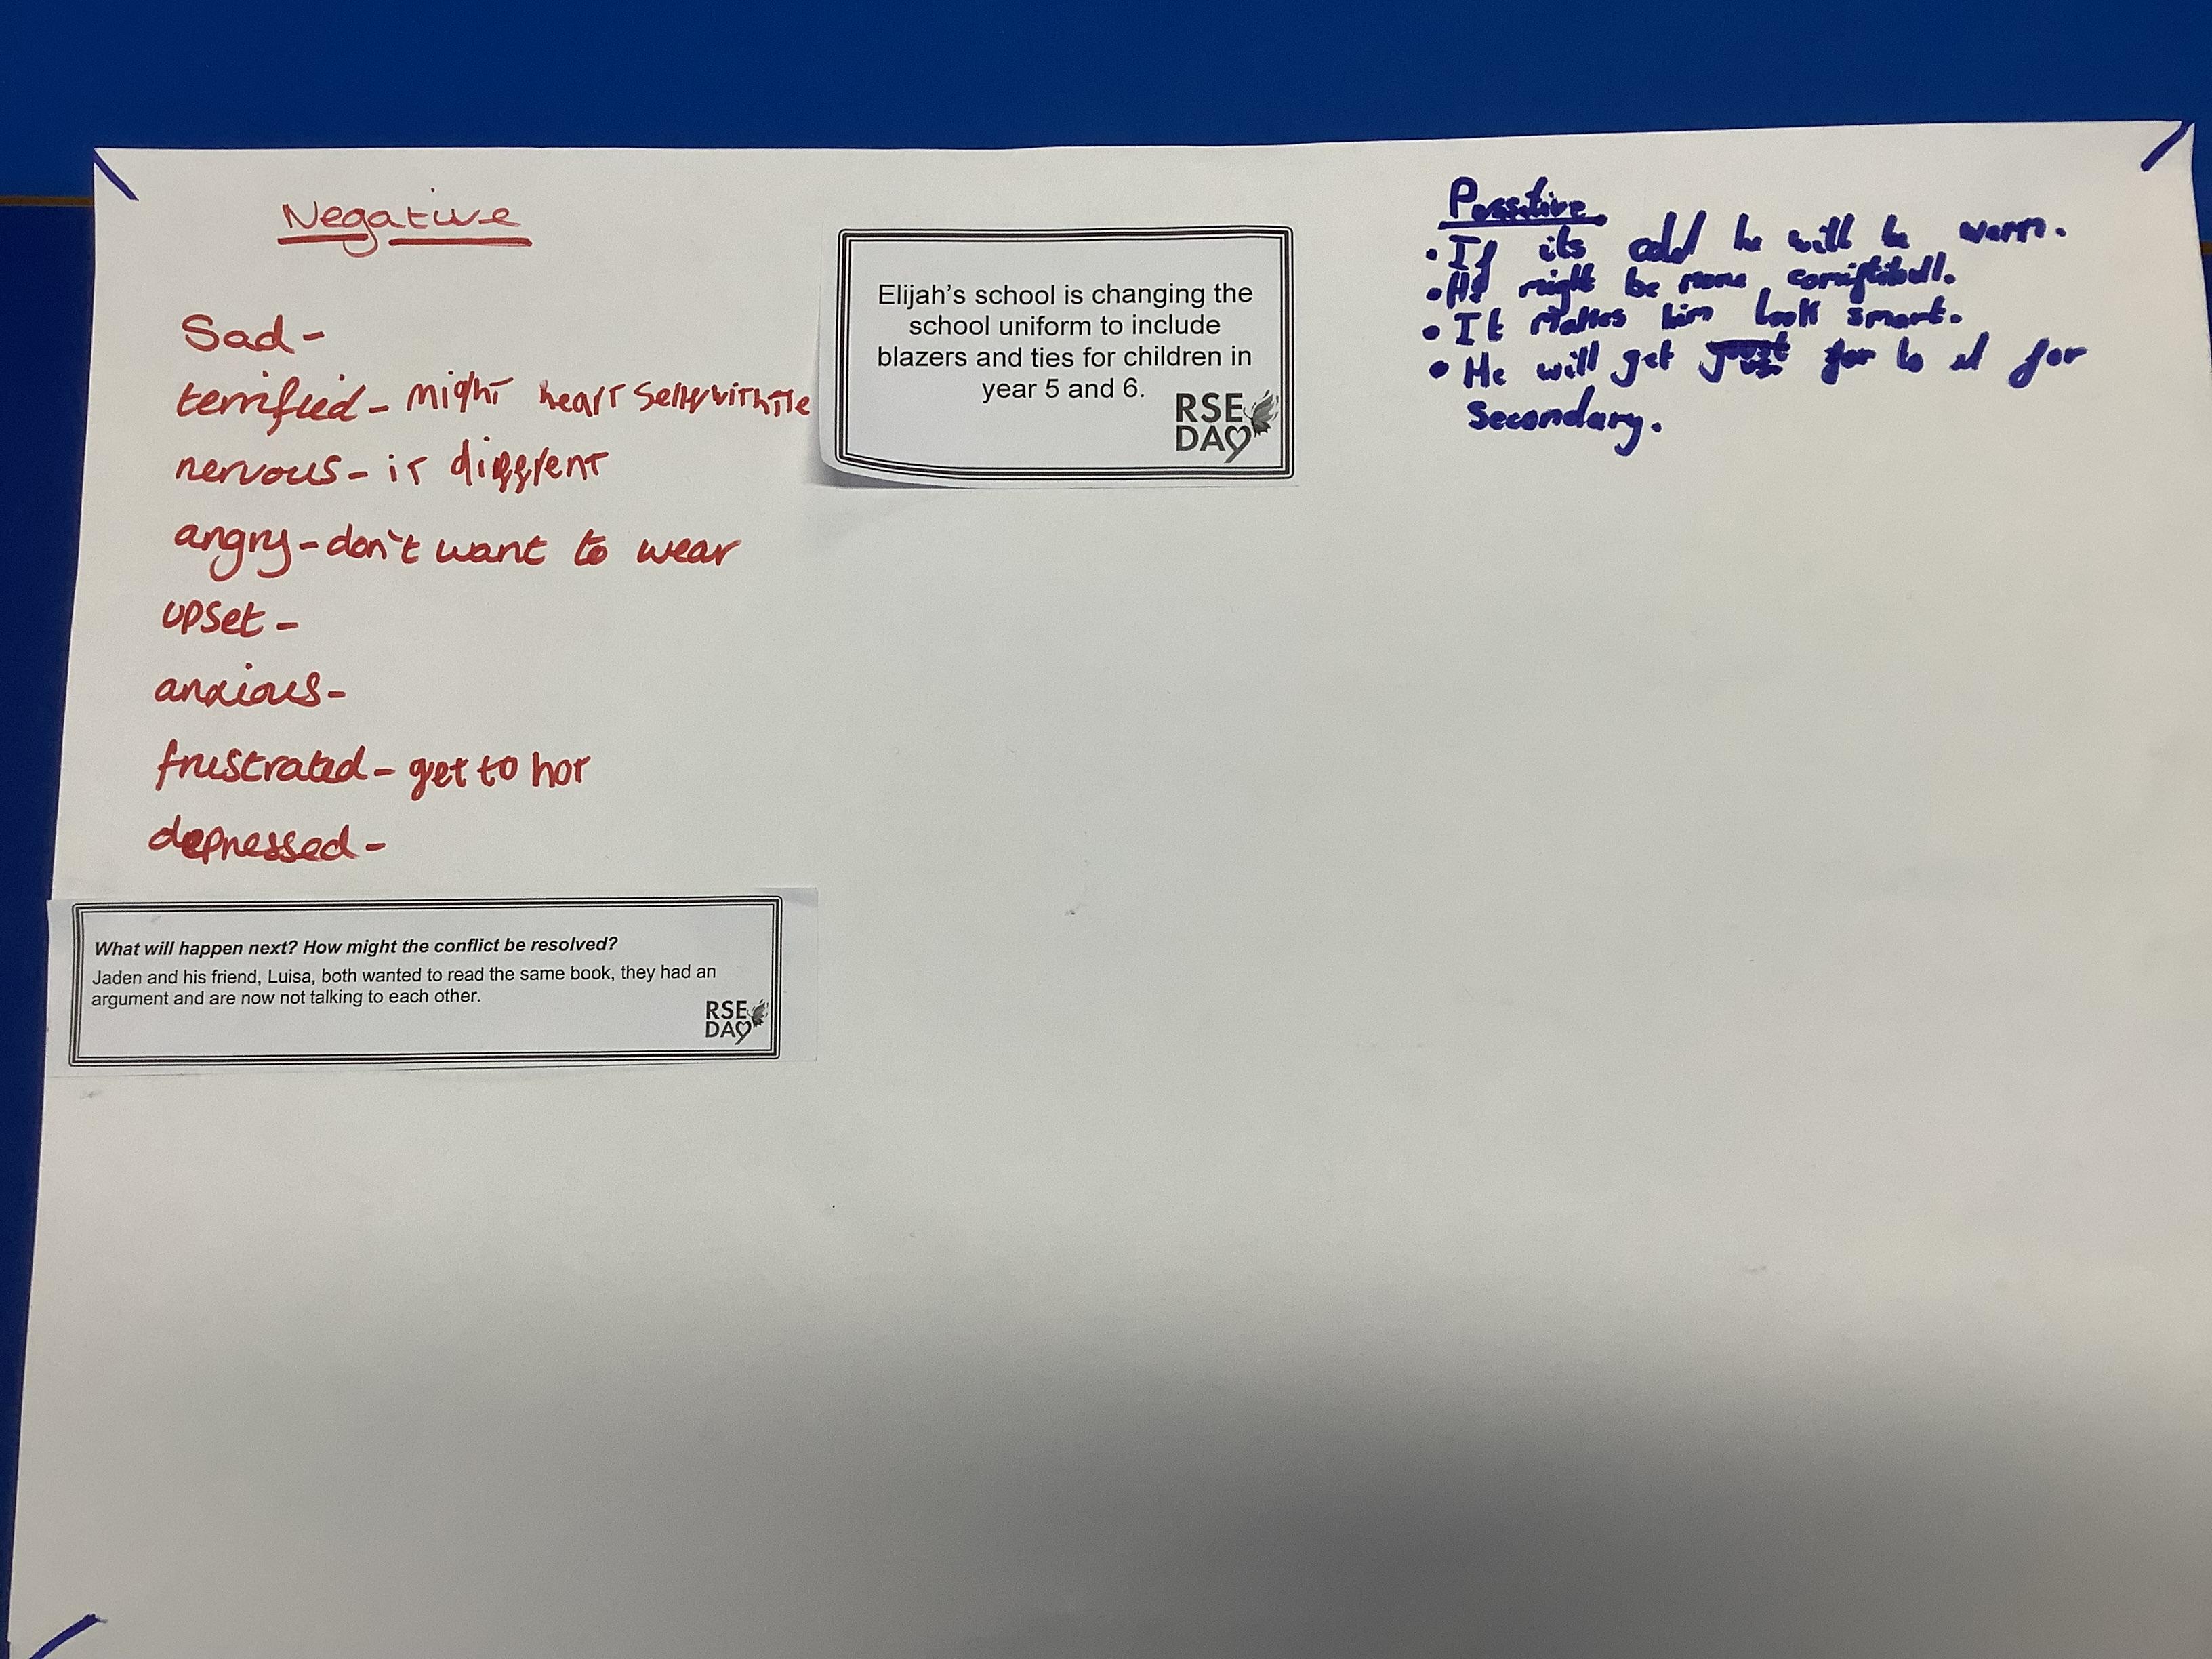 Negative
Sad -
terrified - might heart self with tie
nervous - it diffrent
angry - don't want to wear
upset -
anxious -
frustrated - get to hot
depressed -
Elijah's school is changing the
school uniform to include
blazers and ties for children in
year 5 and 6.
RSE
DAY
Possitive
• If its cold he will be warm.
• He might be more
• It makes him look smart.
• He will get for to it for
Secondary.
What will happen next? How might the conflict be resolved?
Jaden and his friend, Luisa, both wanted to read the same book, they had an
argument and are now not talking to each other.
RSE
DAY